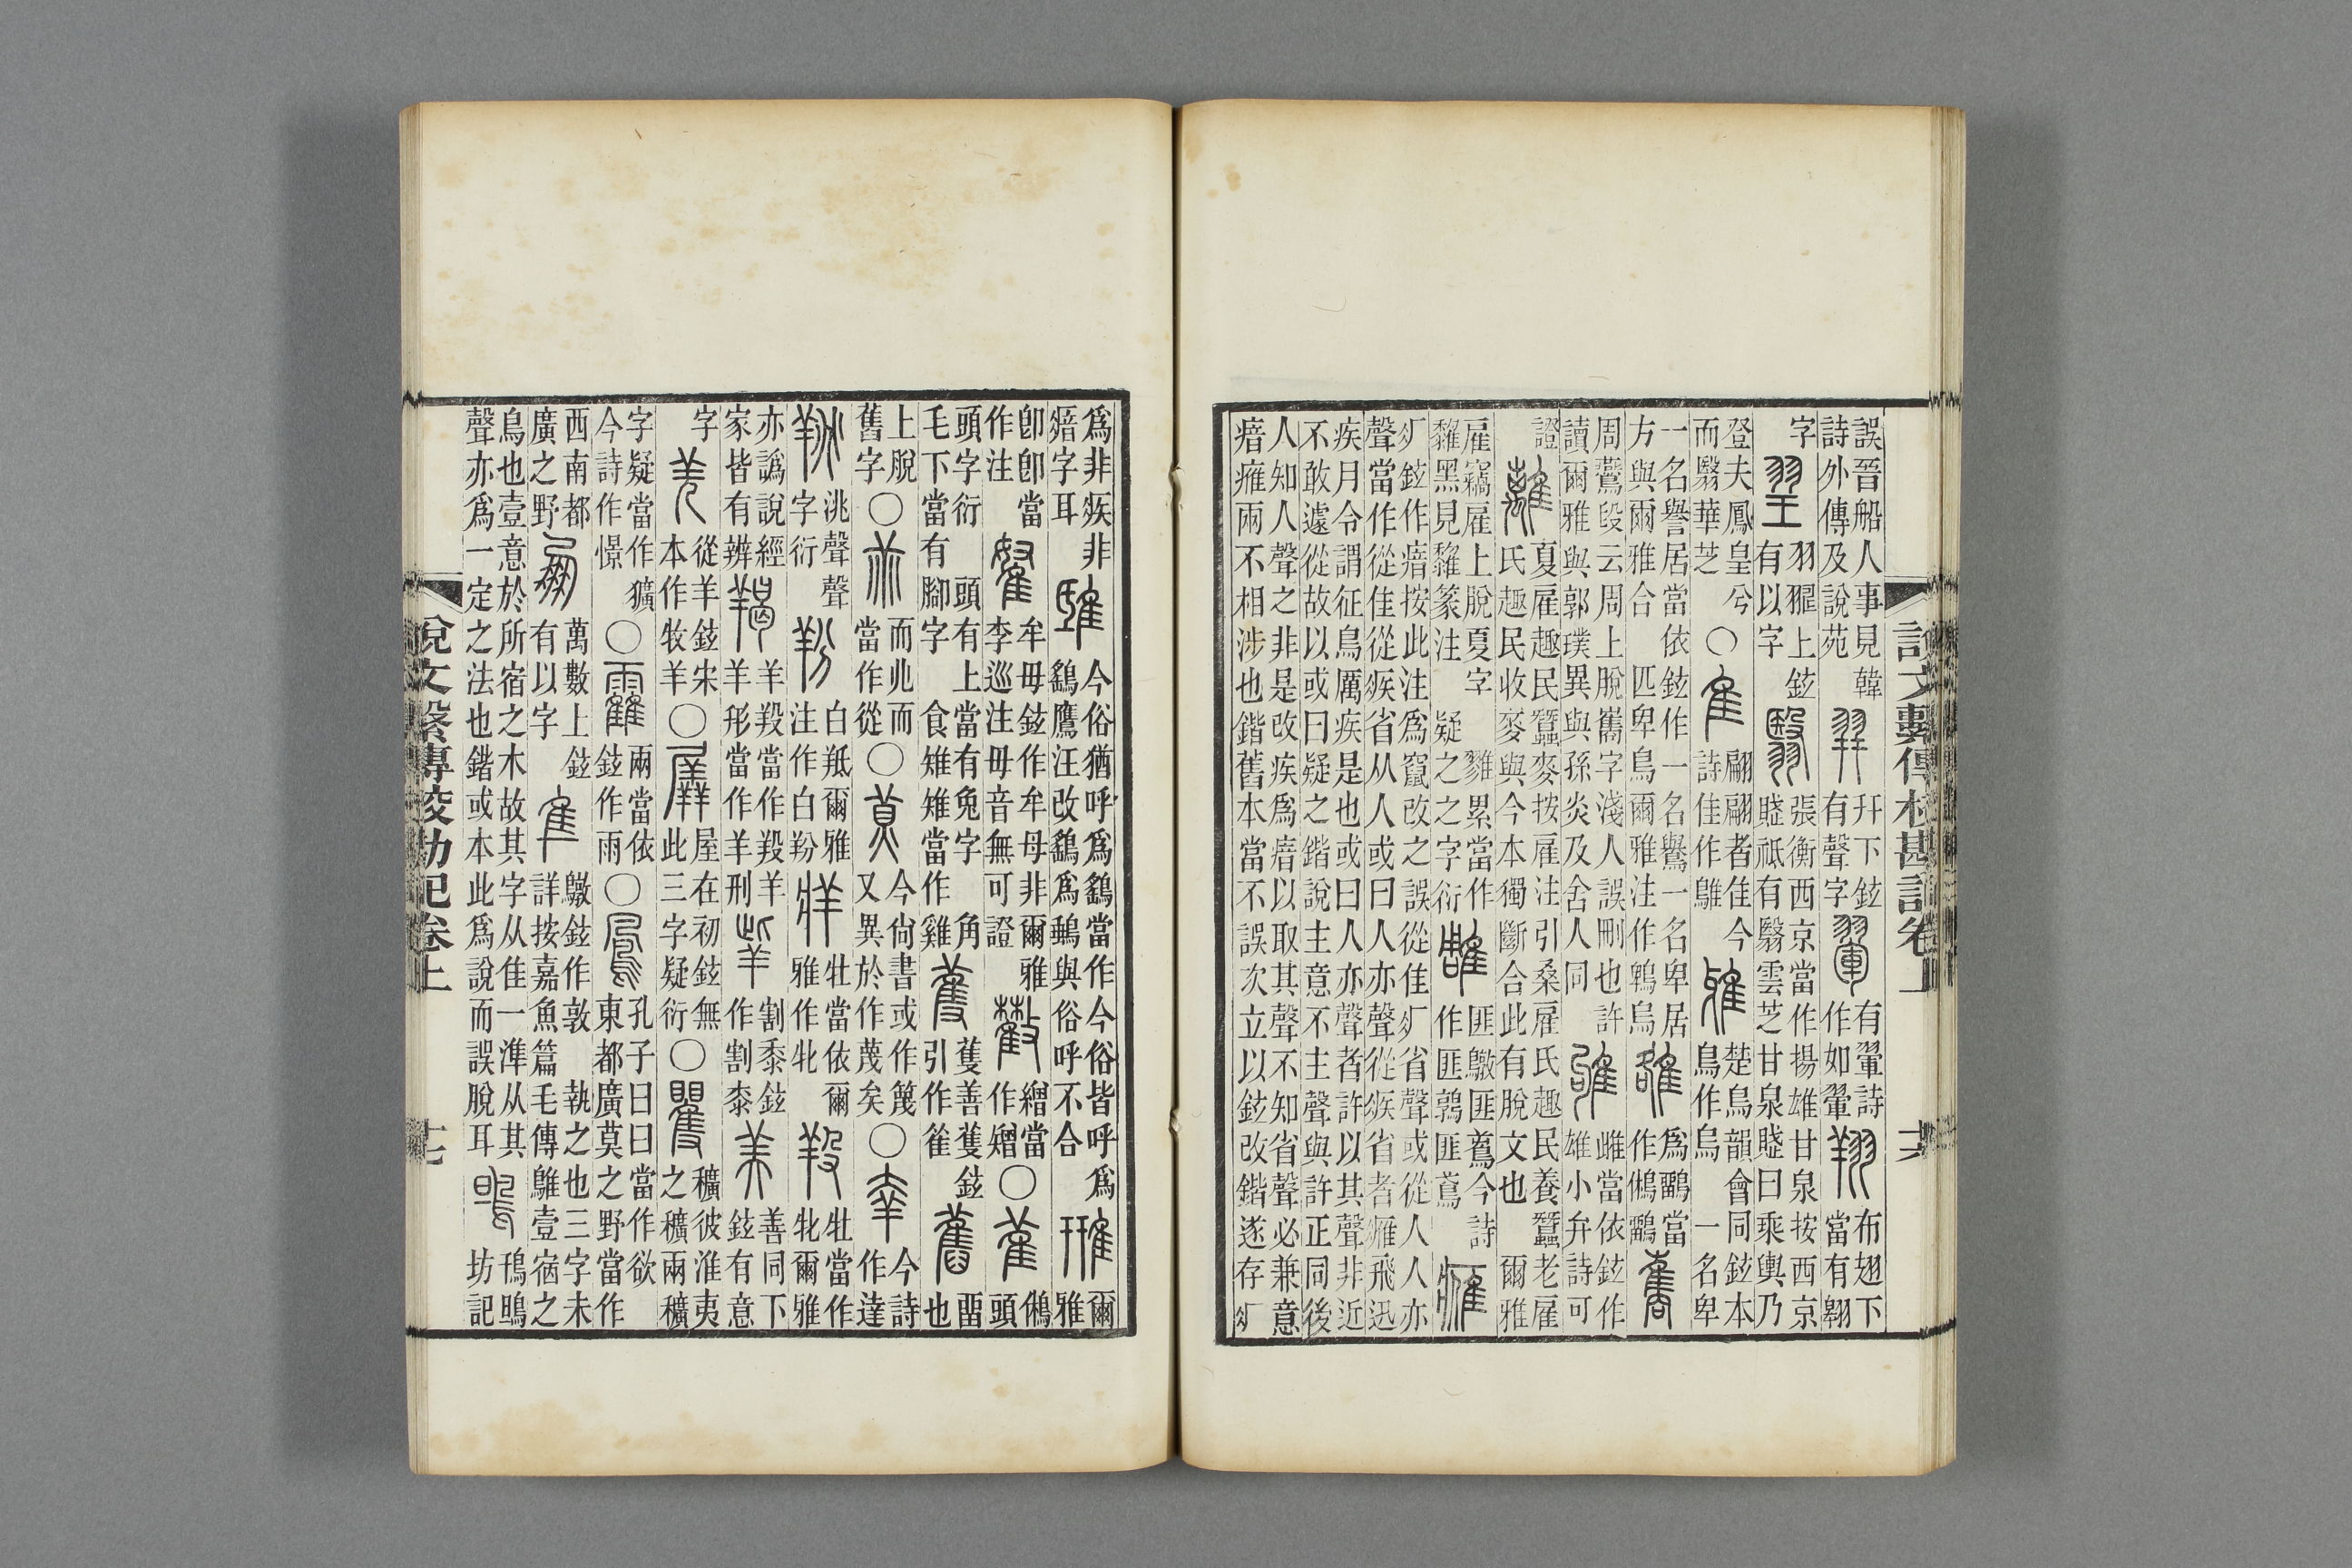 說文繫傳校勘記卷上 十六
誤晉船人事見韓
詩外傳及說苑
羿
幵下鉉
有聲字
翬
有翬詩
作如翬
翔
布翅下
當有翱
字
翌
有以字
翳
張衡西京當作揚雄甘泉按西京
賦祇有翳雲芝甘泉賦曰乘輿乃
登夫鳳皇兮
而翳華芝
〇隹
翩翩者隹今
詩佳作鵻
雅
楚鳥韻會同鉉本
鳥作烏 一名卑
一名譽居當依鉉作一名鸒一名卑居
方與爾雅合 匹卑鳥爾雅注作鵯烏
雒
為鸓當
作鵂鸓
巂
周鷰段云周上脫巂字淺人誤刪也許
讀爾雅與郭璞異與孫炎及舍人同
雊
雌當依鉉作
雄小弁詩可
證
離
夏雇趣民蠶麥按雇注引桑雇氏趣民養蠶老雇
氏趣民收麥與今本獨斷合此有脫文也 爾雅
雇竊雇上脫夏字
黐黑見黐篆注 疑之之字衍
匪鷻匪鴌今詩
作匪鶉匪鳶
疒鉉作瘖按此注為竄改之誤從隹疒省聲或從人人亦
聲當作從隹從疾省从人或曰人亦聲從疾省者癰飛迅
疾月令謂征鳥厲疾是也或曰人亦聲者許以其聲非近
不敢遽從故以或曰疑之鍇說主意不主聲與許正同後
人知人聲之非是改疾為瘖以取其聲不知省聲必兼意
瘖癰兩不相涉也鍇舊本當不誤次立以鉉改鍇遂存疒
為非疾非
瘖字耳
今俗猶呼為鷂當作今俗皆呼為
鷂鷹汪改鷂為鴟與俗呼不合
雃
爾
雅
即即當
作注
牟毋鉉作牟母非爾雅
李巡注毋音無可證
繒當
作矰
〇雈
鵂
頭
頭字衍 頭有上當有兔字 角
毛下當有腳字 食雉雉當作雞
蒦
蒦善蒦鉉
引作篗
舊
畱
也
上脫
舊字
〇
而兆而
當作從
〇莧
今尚書或作篾
又異於作蔑矣
〇羍
今詩
作達
洮聲聲
字衍
羒
白羝爾雅
注作白羒
牂
牡當依爾
雅作牝
羖
牡當作
牝爾雅
亦譌說經
家皆有辨
羯
羊羖當作羖羊
羊形當作羊刑
割黍鉉
作割桼
美
善同下
鉉有意
字
羌
從羊鉉宋
本作牧羊
〇羼
屋在初鉉無
此三字疑衍
〇瞿
穬彼淮夷
之穬兩穬
字疑當作獷
今詩作憬
〇靃
兩當依
鉉作雨
〇
孔子曰曰當作欲
東都廣莫之野當作
西南都
廣之野
萬數上鉉
有以字
隼
鷻鉉作敦 執之也三字未
詳按嘉魚篇毛傳鵻壹宿之
鳥也壹意於所宿之木故其字从隹一準从其
聲亦為一定之法也鍇或本此為說而誤脫耳
坊記
說文繫傳校勘記卷上 十七